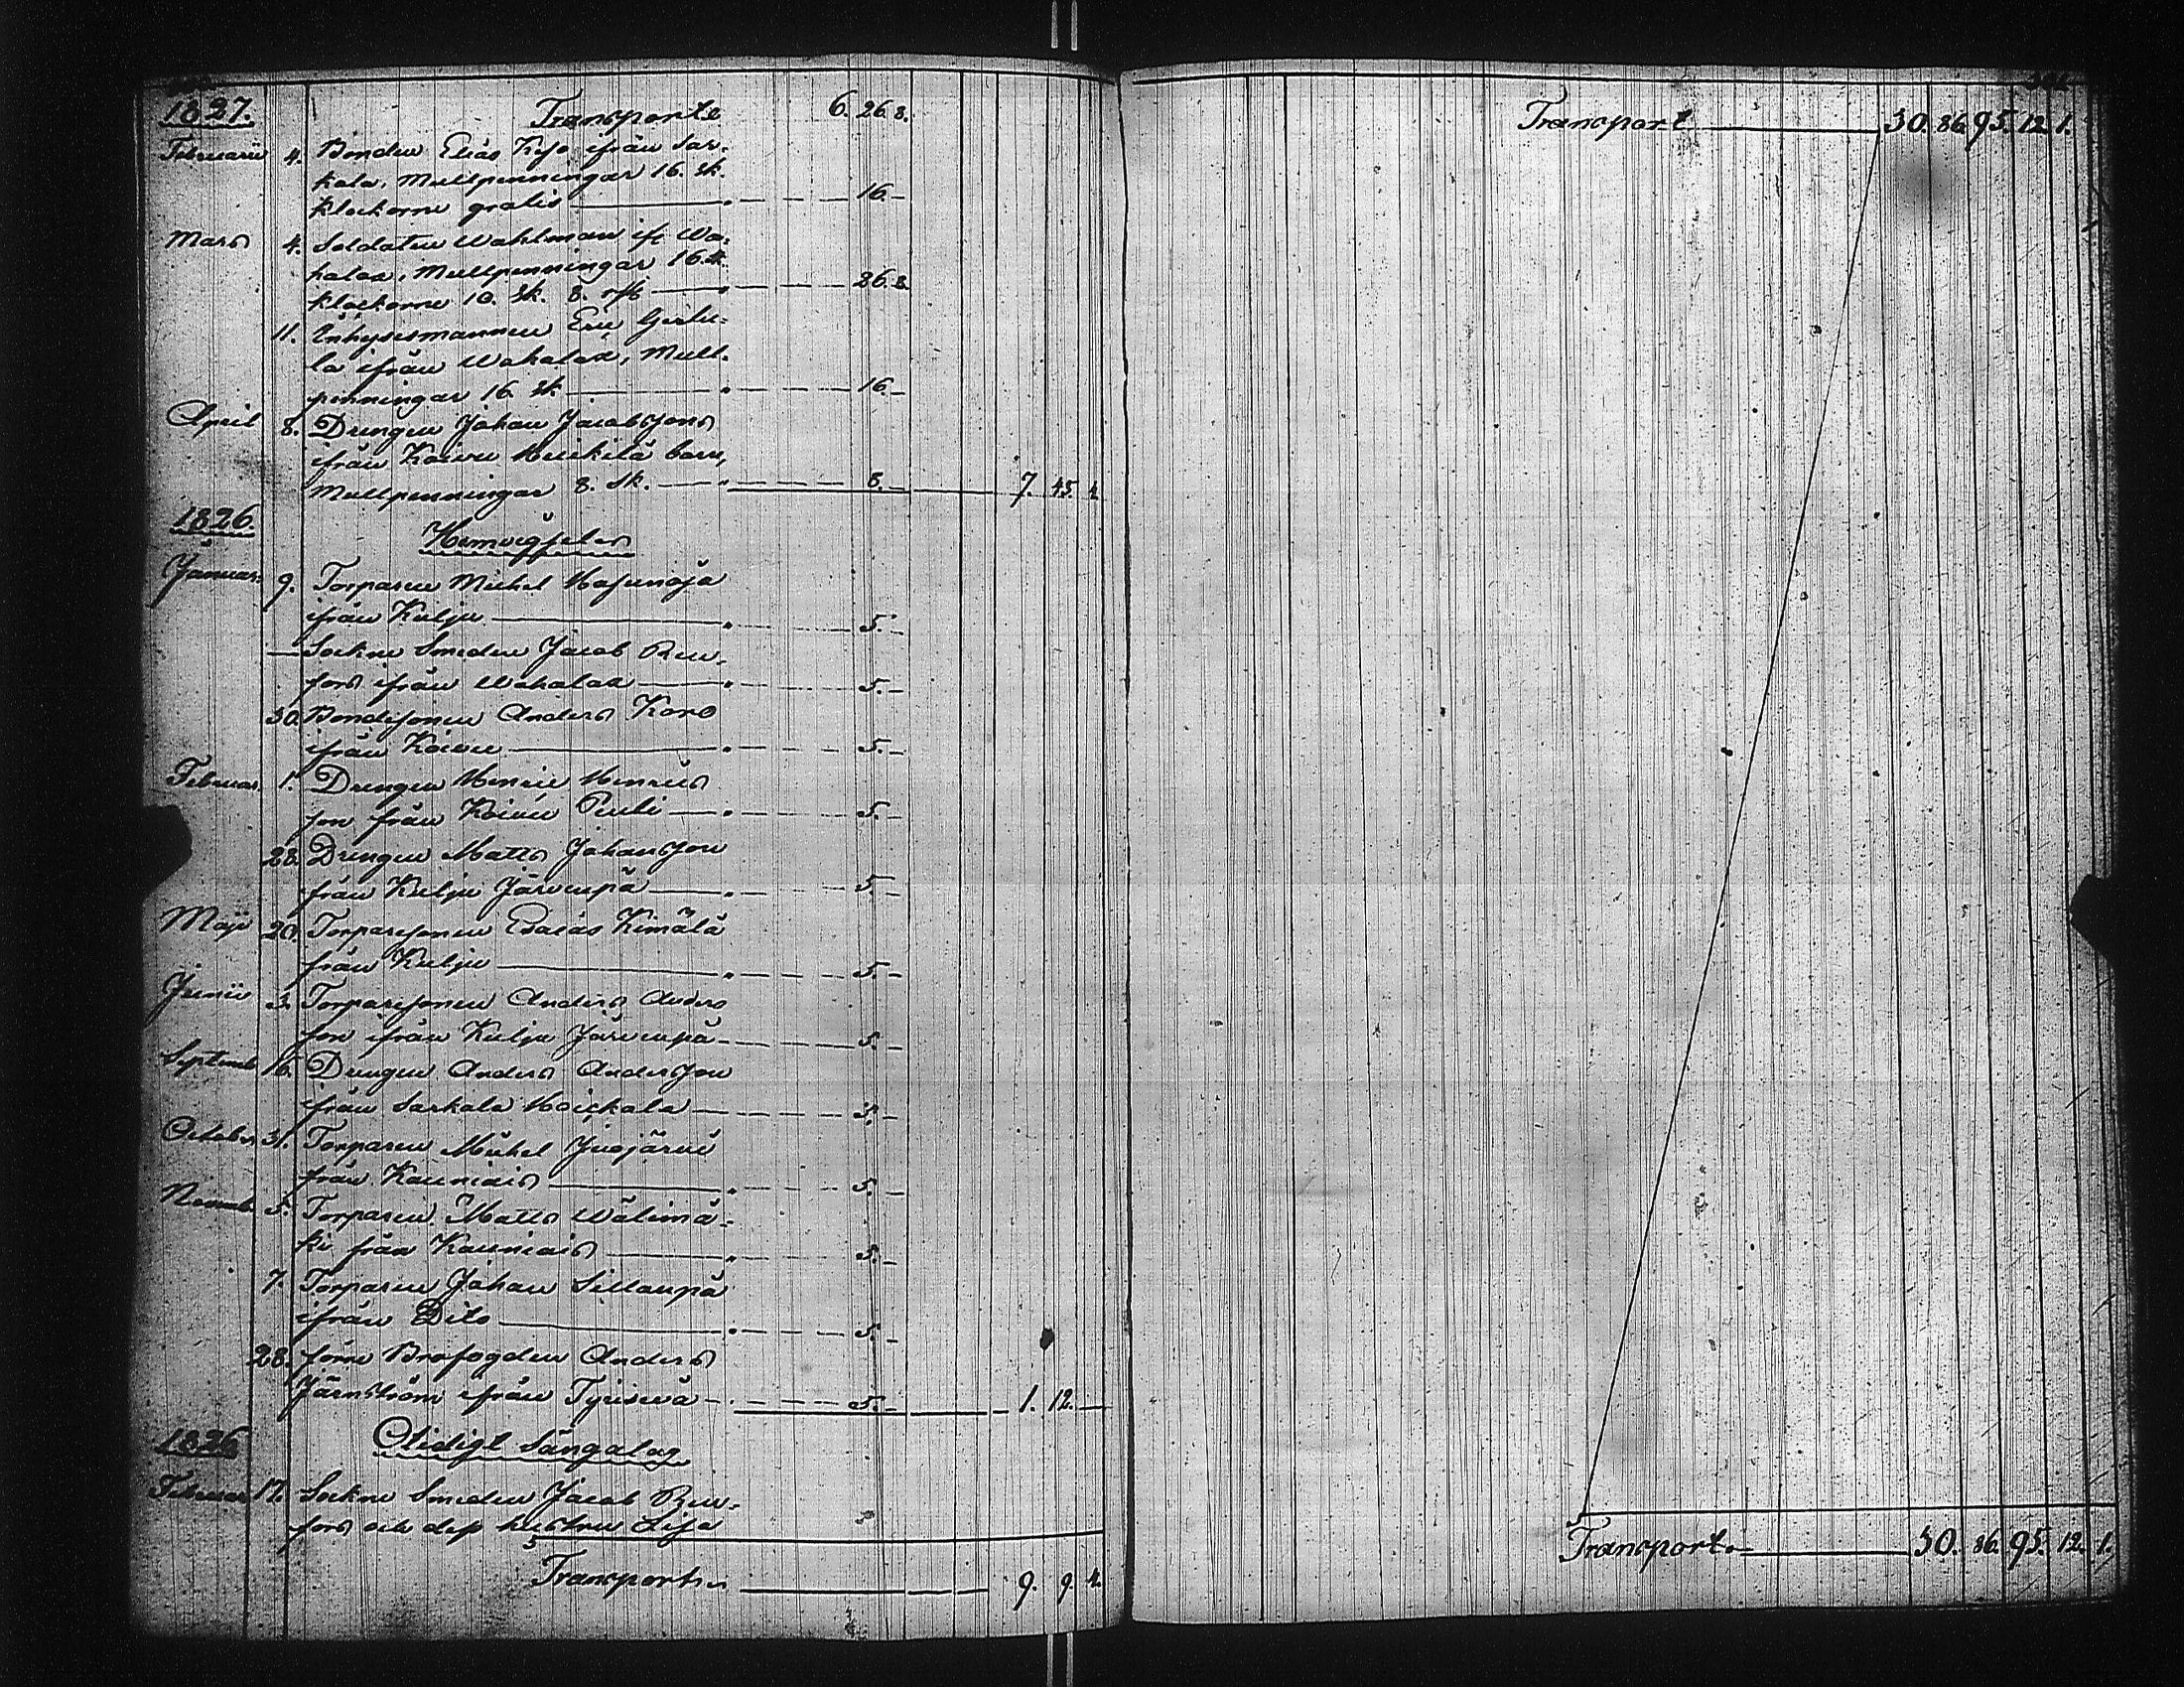 1827. Transporte 6. 26. 8.
Februarii 4. Bonden Elias Kejo ifrån Sar-
kala, Mullpenningar 16. sk.
klockorne gratis — 16. -
Mars 4. Soldaten Wahlman ifr. Wa-
halax, Mullpenningar 16. sk.
klockorne 10. sk. 8. — 26. 8.
11. Inhysesmannen Eric
la ifrån Wahalax, Mull-
penningar 16 sk — 16. -
April 8. Drengen Johan Jacobssons
ifrån Koivu Heikilä barn,
Mullpenningar 8. sk. — 8. - 7. 45. 4.
1826. Hemvigslar
Januar. 9. Torparen Michel Hajunoja
ifrån Kulju — 5. -
— Sockne Smeden Jacob Ren-
fors ifrån Wahalax — 5. -
30. Bondesonen Anders Karo
ifrån Koivu — 5. -
Februar. 1. Drengen Henric Henrics
son från Koivu Penti — 5. -
28. Drengen Matts Johansson
från Kulju Järvenpä — 5. -
Maji 20. Torparesonen Esaias Kimälä
från Kulju — 5. -
Junii 3. Torparesonen Anders Anders
son ifrån Kulju Järvenpä — 5. -
Septemb. 16. Drengen Anders Andersson
ifrån Sarkala Hoickala — 5. -
October 31. Torparen Michel Jusjärvi
från Kauniais — 5. -
Novemb. 5. Torparen Matts Wälimä-
ki från Kauniais — 5. -
7. Torparen Johan Sillanpä
ifrån Dito — 5. -
28. förre Brofogden Anders
Järnström ifrån Tyrisevä — 5. - 1. 12. —
1826 Otidigt Sängalag
Februar 17. Sockne Smeden Jacob Ren-
fors och dess hustru Lisa
Transport — 9. 9. 4.
Transport — 30. 86. 95. 12. 1.
Transport — 30. 86. 95. 12. 1.